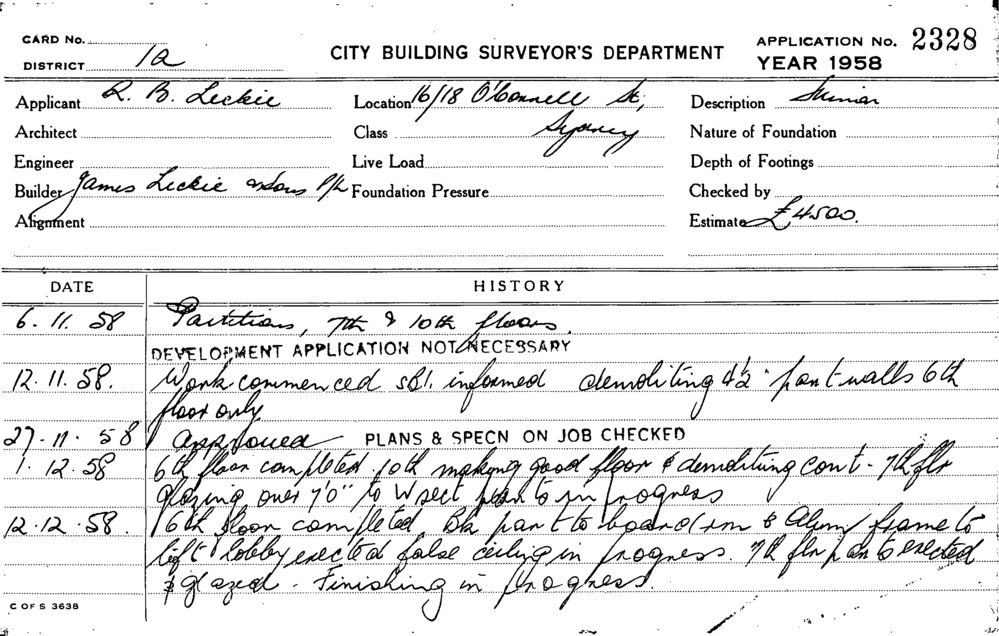 CARD No.
DISTRICT 1a
CITY BUILDING SURVEYOR'S DEPARTMENT
APPLICATION No. 2328
YEAR 1958
Applicant R. B. Leckie
Location 16/18 O'Connell St,
Description
Architect
Class Sydney
Nature of Foundation
Engineer
Live Load
Depth of Footings
Builder James Leckie & Sons P/L
Foundation Pressure
Checked by
Alignment
Estimate £4500.
DATE HISTORY
6.11.58 Partitions, 7th & 10th floors.
DEVELOPMENT APPLICATION NOT NECESSARY
12.11.58. Work commenced informed demoliting 4½" part walls 6th
floor only
27.11.58 Approved PLANS & SPECN ON JOB CHECKED
1.12.58 6th floor completed. 10th making good floor & demoliting cont - 7th flr
glazing over 7'0" to W sect in progress
12.12.58. 6th floor completed. Bk part to board rm & Alum frame to
lift lobby erected false ceiling in progress. 7th flr erected
& glazed - Finishing in progress.
C OF S 3638